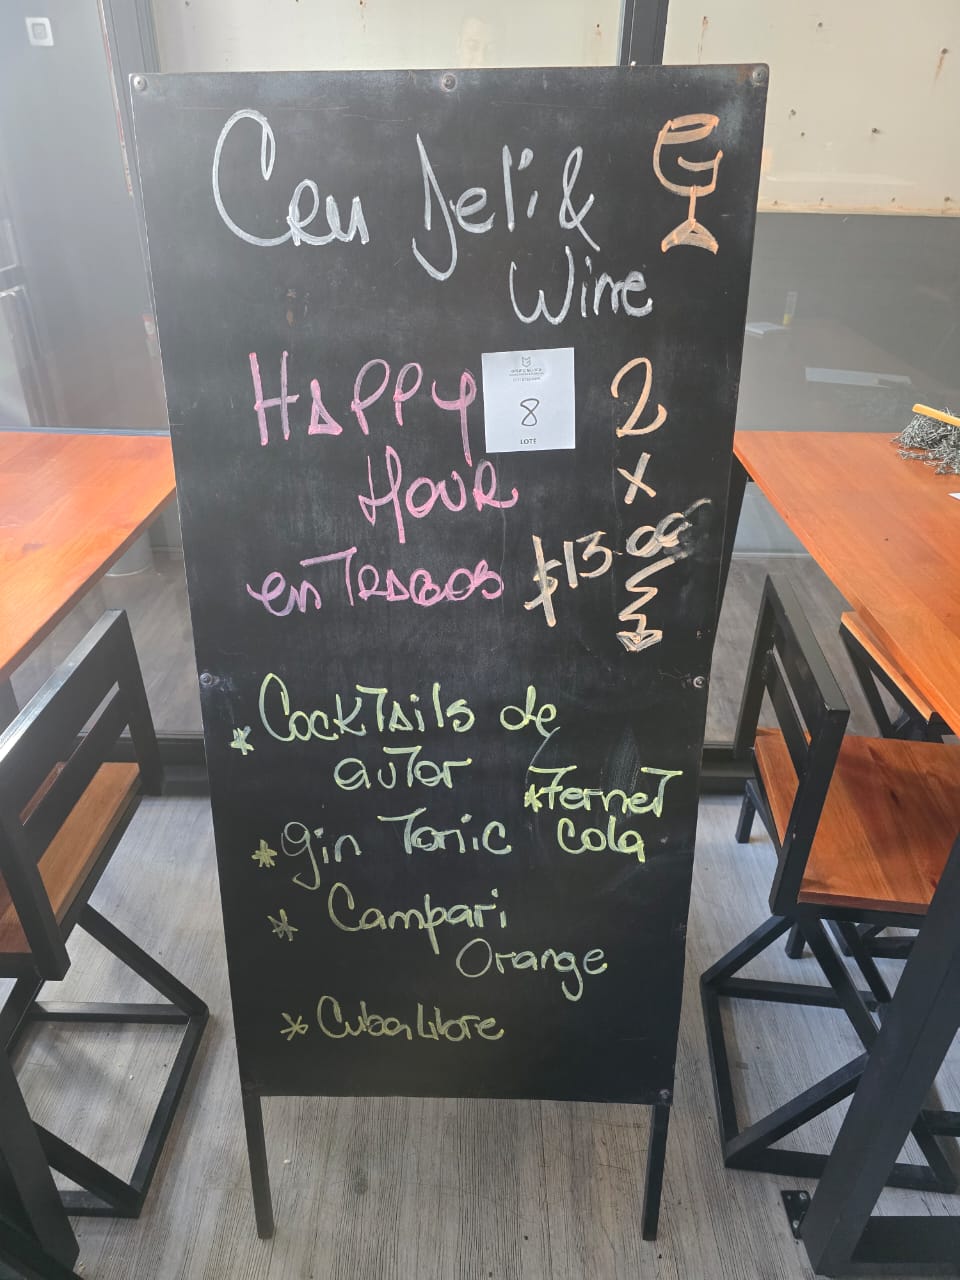 Cru Deli &
Wine
Happy
Hour
en Tragos
8
LOTE
2
x
$13.00
* Cocktails de
autor
* Fernet
cola
* Gin Tonic
* Campari
Orange
* Cuba Libre